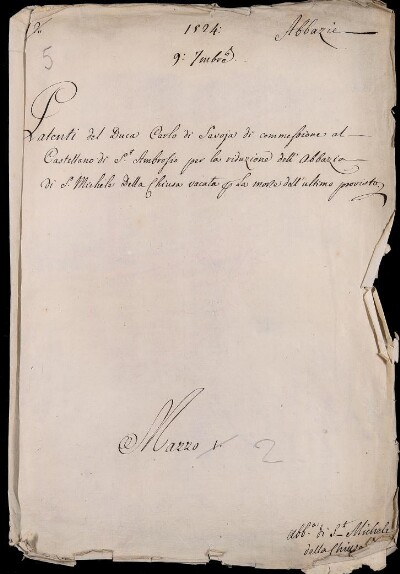 1524: Abbazie
5
9: 7mbre
Patenti del Duca Carlo di Savoja di commessione al
Castellano di St Ambrosio per la riduzione dell'Abbazia
di S. Michele della Chiusa vacata per la morte dell'ultimo provisto
Mazzo 1 2
Abb.a di St Michele
della Chiusa